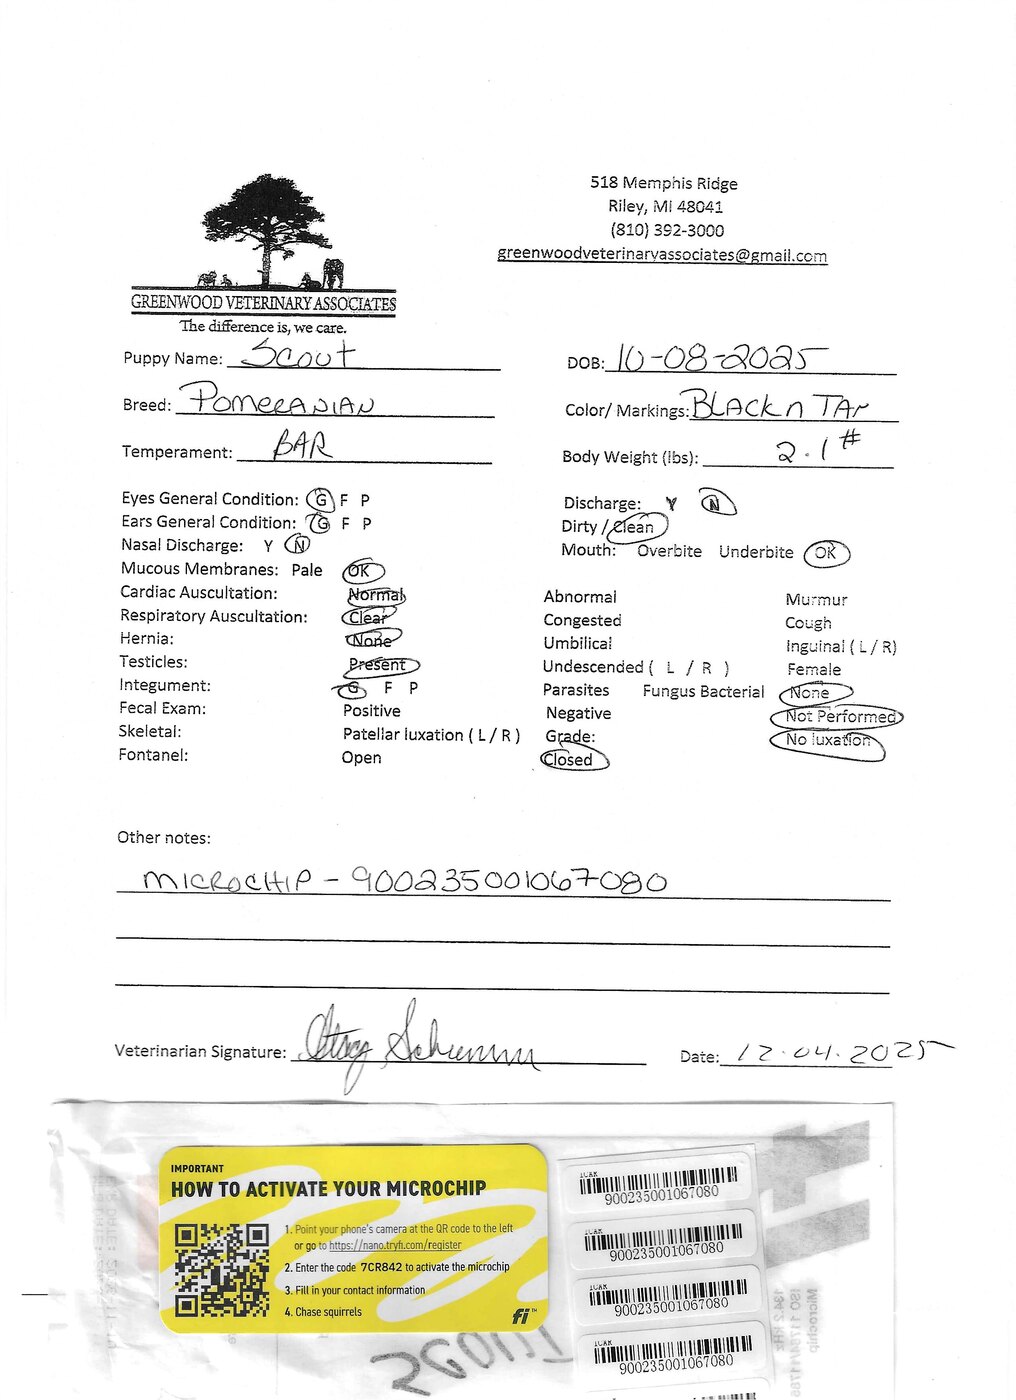 518 Memphis Ridge
Riley, MI 48041
(810) 392-3000
greenwoodveterinaryassociates@gmail.com
GREENWOOD VETERINARY ASSOCIATES
The difference is, we care.
Puppy Name: Scout DOB: 10-08-2025
Breed: POMERANIAN Color/ Markings: BLACK n TAN
Temperament: BAR Body Weight (lbs): 2.1#
Eyes General Condition: G F P Discharge: Y N
Ears General Condition: G F P Dirty / Clean
Nasal Discharge: Y N Mouth: Overbite Underbite OK
Mucous Membranes: Pale OK
Cardiac Auscultation: Normal Abnormal Murmur
Respiratory Auscultation: Clear Congested Cough
Hernia: None Umbilical Inguinal ( L / R)
Testicles: Present Undescended ( L / R ) Female
Integument: G F P Parasites Fungus Bacterial None
Fecal Exam: Positive Negative Not Performed
Skeletal: Patellar luxation ( L / R ) Grade: No luxation
Fontanel: Open Closed
Other notes:
MICROCHIP - 900235001067080
Veterinarian Signature: Stacy Date: 12.04.2025
IMPORTANT
HOW TO ACTIVATE YOUR MICROCHIP
1. Point your phone's camera at the QR code to the left
or go to https://nano.tryfi.com/register
2. Enter the code 7CR842 to activate the microchip
3. Fill in your contact information
4. Chase squirrels
fi™
ICAR
900235001067080
ICAR
900235001067080
ICAR
900235001067080
ICAR
900235001067080
SCOUT
Microchip
ISO 11784/11785
134.2 kHz